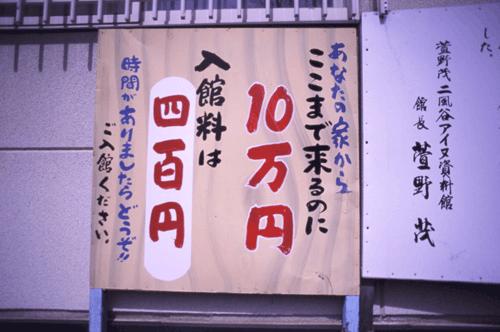 した。
萱野茂二風谷アイヌ資料館
館長 萱野 茂
あなたの家から
ここまで来るのに
10万円
入館料は
四百円
時間がありましたらどうぞ!!
ご入館ください。